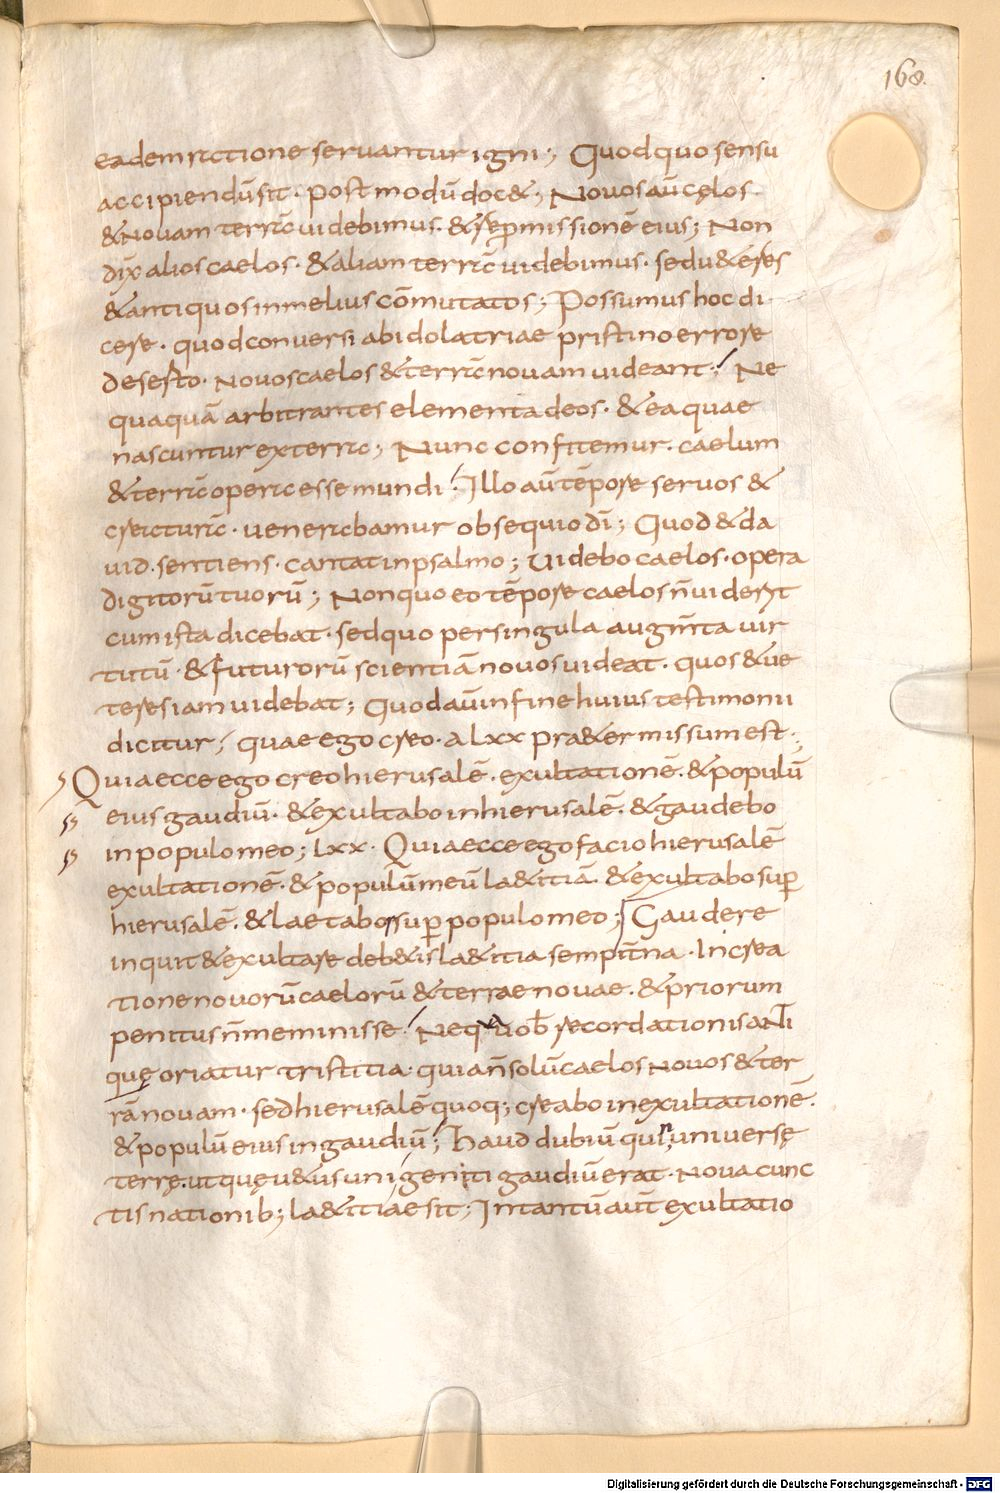 168.
eadem ratione servantur igni; Quod quo sensu
accipiendū sit · postmodū doc&; Novos aū cęlos
& novam terrā videbimus · & sequi p̱missionē eius; Non
dix̄ alios caelos · & aliam terrā videbimus · sed u&eres
& antiquos in melius cōmutatos; Possumus hoc di
cere · quod conversi ab idolatriae pristino errore
deserto · novos caelos & terrā novam videant; Ne
quaquā arbitrantes elementa deos · & ea quae
nascuntur ex terra; Nunc confitemur · caelum
& terrā opera esse mundi; Illo aū tēpore servos &
creaturā · venerabamur obsequio dī; Quod & da
uid · sentiens · cantat in psalmo; Videbo caelos · opera
digitorū tuorū; Non quo eo tēpore caelos n̄ viderit
cum ista dicebat · sed quo per singula augm̄ta vir
tutū · & futurorū scientiā novos videat · quos & ve
teres iam videbat; Quod aū in fine huius testimonii
dicitur; quae ego creo · a LXX pra&ermissum est ·;
Quia ecce ego creo hierusalē · exultationē · & populū
eius gaudiū · & exultabo in hierusalē · & gaudebo
in populo meo; LXX · Quia ecce ego facio hierusalē
exultationē · & populū meū la&itiā · & exultabo sup̱
hierusalē · & laetabor sup̱ populo meo; Gaudere
inquit & exultare deb&is la&itia sempit̄na · In crea
tione novorū caelorū & terrae novae · & priorum
penitus n̄ meminisse; Neq; vob̄ recordationis anti
quę oriatur tristitia · quia n̄ solū caelos novos & ter
rā novam · sed hierusalē quoq; creabo in exultationē ·
& populū eius in gaudiū; Haud dubiū qun; universę
terrę · ut quę u&us unigeniti gaudiū erat · nova cunc
tis nationib; la&itiae sit; In tantū aūt exultatio
Digitalisierung gefördert durch die Deutsche Forschungsgemeinschaft - DFG